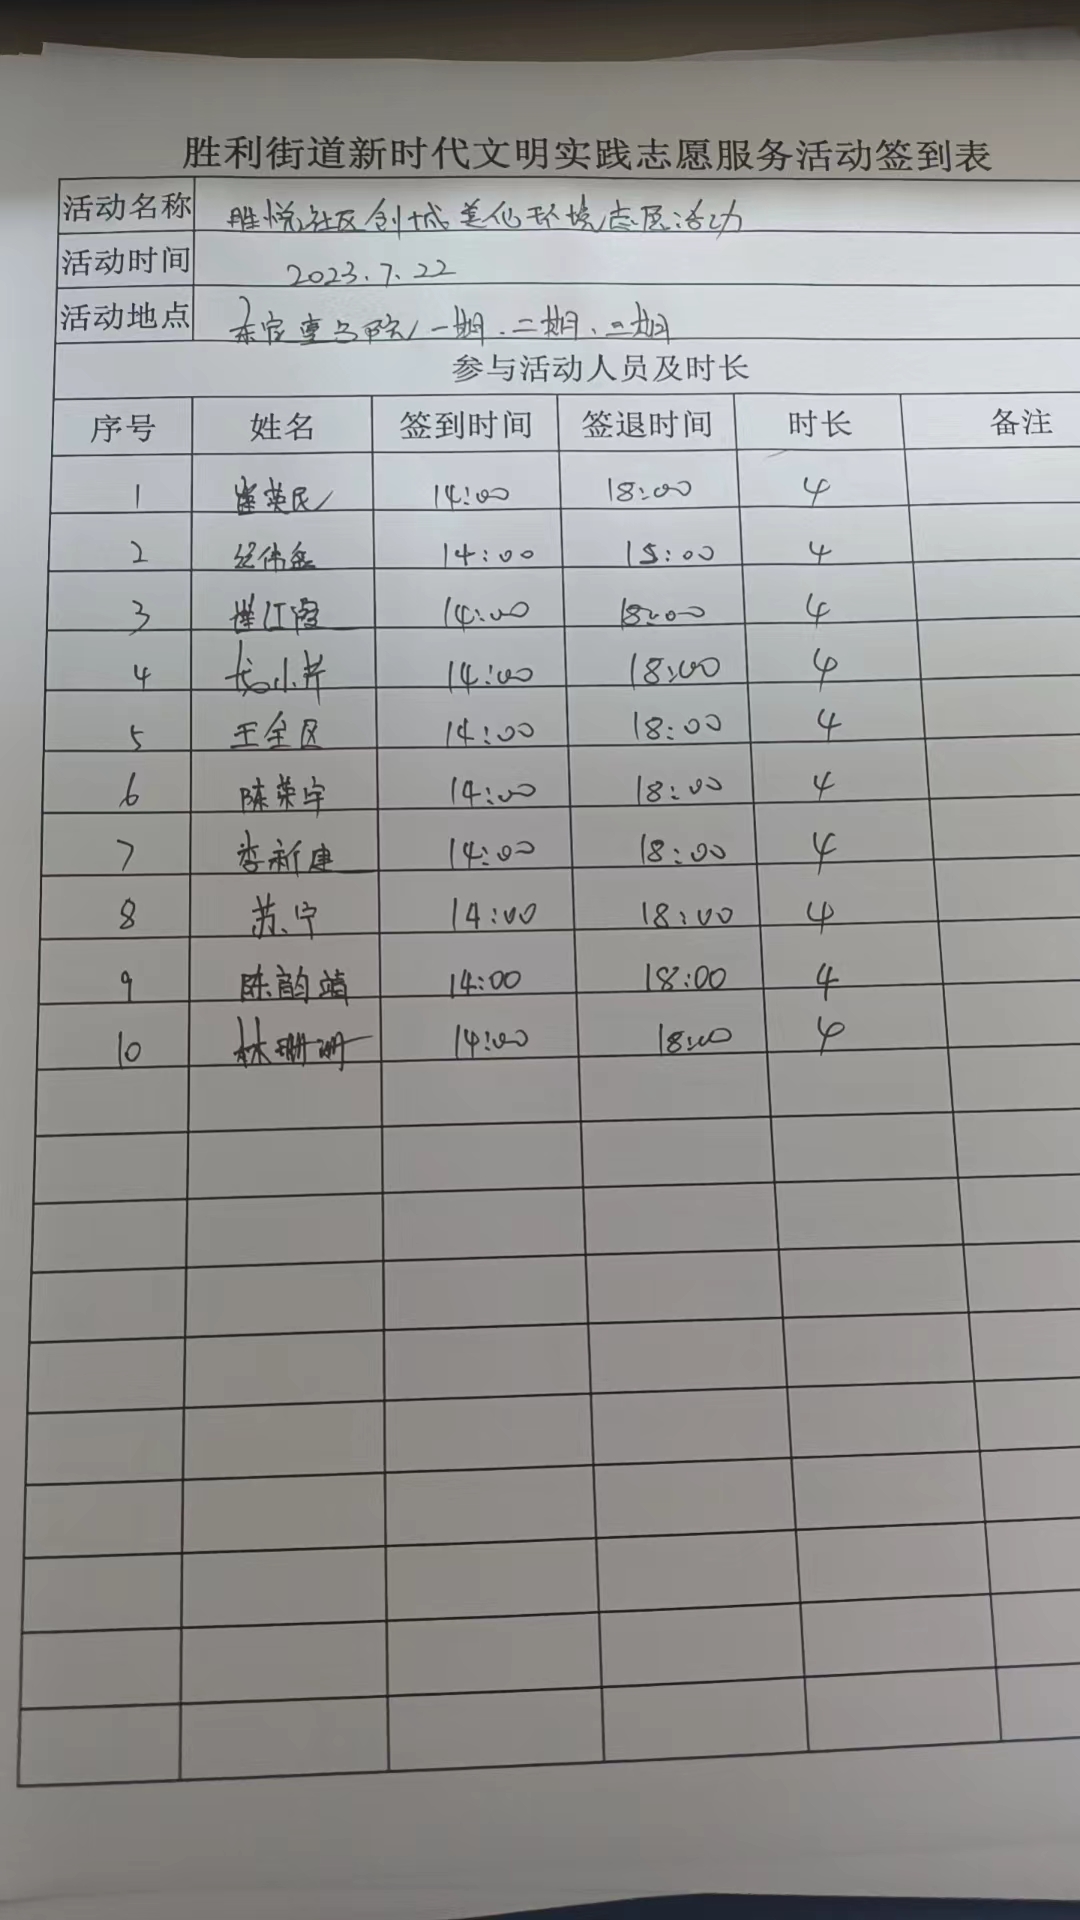 胜利街道新时代文明实践志愿服务活动签到表
活动名称 胜悦社区创城美化环境志愿活动
活动时间 2023.7.22
活动地点 一期、二期、三期
参与活动人员及时长
序号 姓名 签到时间 签退时间 时长 备注
1 崔英民 14:00 18:00 4
2 14:00 15:00 4
3 崔江霞 14:00 18:00 4
4 14:00 18:00 4
5 王全区 14:00 18:00 4
6 陈荣宇 14:00 18:00 4
7 李新建 14:00 18:00 4
8 苏宁 14:00 18:00 4
9 陈韵靖 14:00 18:00 4
10 林珊珊 14:00 18:00 4